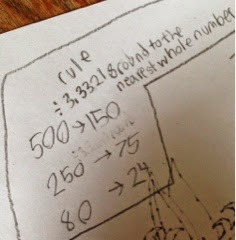 rule
÷3.3321 & round to the
nearest whole number
500→150
250 →75
80 →24